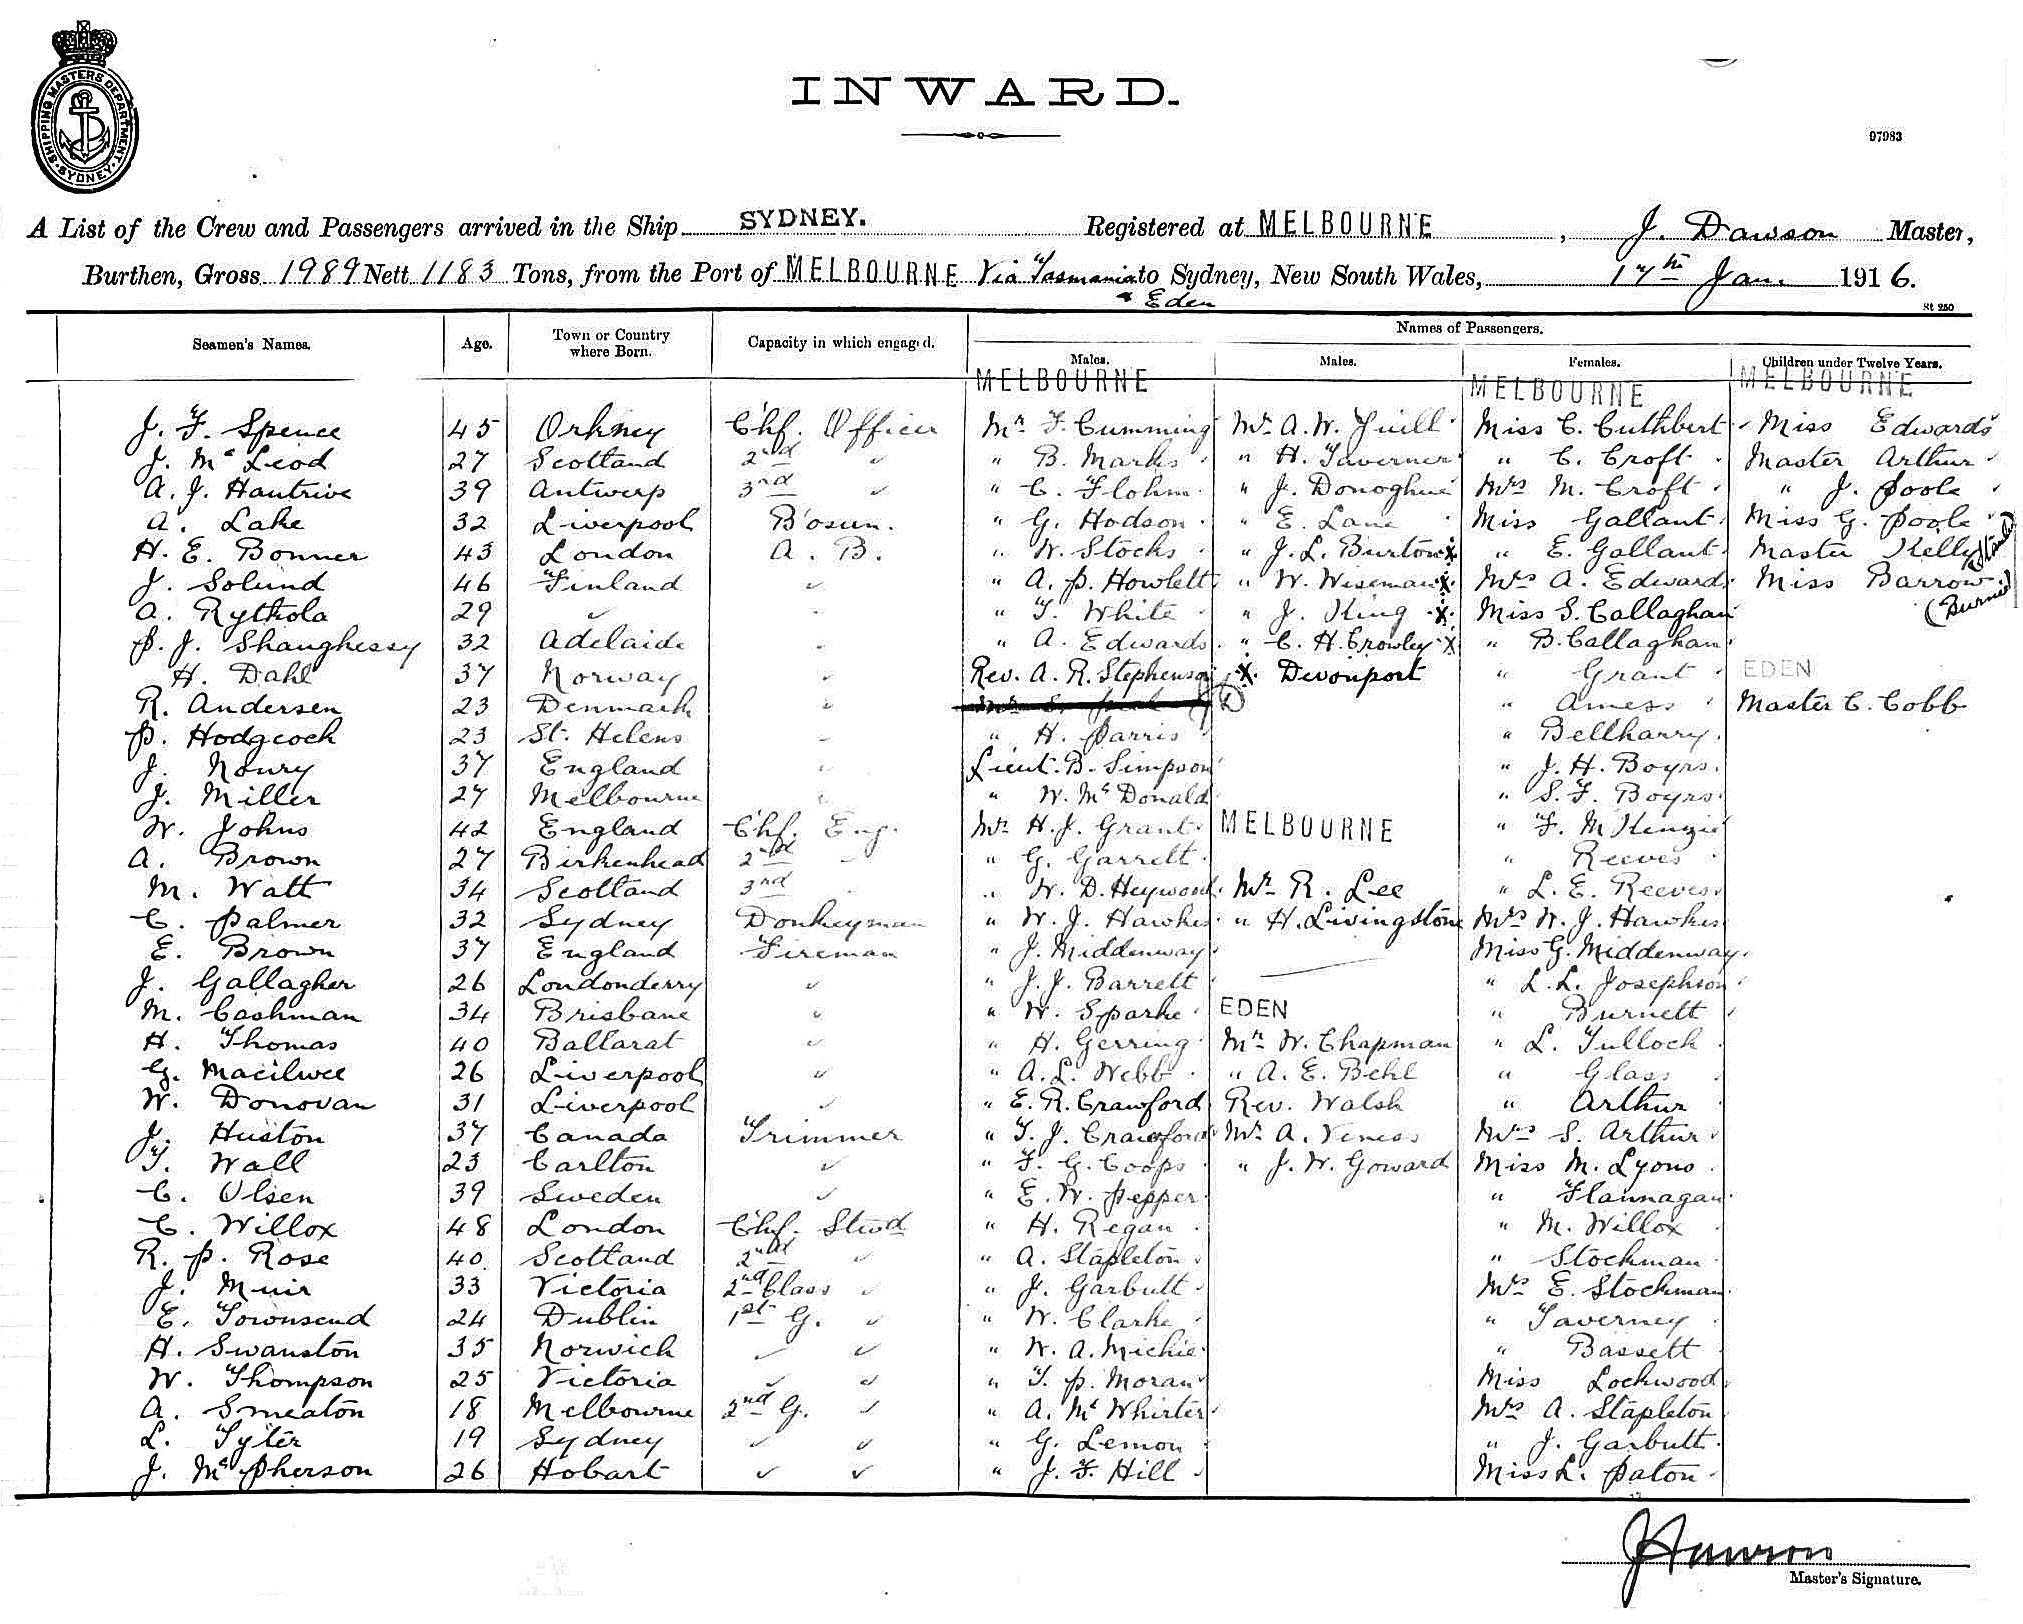 SHIPPING MASTERS DEPARTMENT SYDNEY
INWARD.
97983
A List of the Crew and Passengers arrived in the Ship SYDNEY. Registered at MELBOURNE, J. Dawson Master,
Burthen, Gross 1989 Nett 1183 Tons, from the Port of MELBOURNE Via Tasmania to Sydney, New South Wales, 17th Jan. 1916.
& Eden
St 250
Names of Passengers.
Seamen's Names. Age. Town or Country where Born. Capacity in which engaged. Males. Males. Females. Children under Twelve Years.
MELBOURNE MELBOURNE MELBOURNE
J. F. Spence 45 Orkney Chf. Officer Mr F. Cumming Mr A. W. Yuill Miss C. Cuthbert Miss Edwards
J. McLeod 27 Scotland 2nd " " B. Marks " H. Taverner " C. Croft Master Arthur
A. J. Hautrive 39 Antwerp 3rd " " C. Flohm " J. Donoghue Mrs M. Croft " J. Poole
A. Lake 32 Liverpool Bosun. " G. Hodson " E. Lane Miss Gallant Miss G. Poole
H. E. Bonner 43 London A. B. " W. Stocks " J. L. Burton X " E. Gallant Master Kelly
J. Solund 46 Finland " " A. P. Howlett " W. Wiseman X Mrs A. Edwards Miss Barrow
A. Rytkola 29 " " " T. White " J. King X Miss S. Callaghan (Burnie)
P. J. Shaughessy 32 Adelaide " " A. Edwards " C. H. Crowley X " B. Callaghan
H. Dahl 37 Norway " Rev. A. R. Stephenson X Devonport " Grant EDEN
R. Andersen 23 Denmark " " Amess Master C. Cobb
P. Hodgcock 23 St. Helens " " H. Parris " Bellharry
J. Noury 37 England " Lieut. B. Simpson " J. H. Boyrs
J. Miller 27 Melbourne " " W. McDonald " S. F. Boyrs
W. Johns 42 England Chf. Eng. Mr H. J. Grant MELBOURNE " F. McKenzie
A. Brown 27 Birkenhead 2nd " " G. Garrett " Reeves
M. Watt 34 Scotland 3rd " " W. D. Heywood Mr R. Lee " L. E. Reeves
C. Palmer 32 Sydney Donkeyman " W. J. Hawkes " H. Livingstone Mrs W. J. Hawkes
E. Brown 37 England Fireman " J. Middenway Miss G. Middenway
J. Gallagher 26 Londonderry " " J. J. Barrett " L. L. Josephson
M. Cashman 34 Brisbane " " W. Sparke EDEN " Burnett
H. Thomas 40 Ballarat " " H. Gerring Mr W. Chapman " L. Tulloch
G. Macilwee 26 Liverpool " " A. L. Webb " A. E. Behl " Glass
W. Donovan 31 Liverpool " " E. R. Crawford Rev. Walsh " Arthur
J. Huston 37 Canada Trimmer " T. J. Crawford Mr A. Veness Mrs S. Arthur
T. Wall 23 Carlton " " F. G. Coops " J. W. Goward Miss M. Lyons
C. Olsen 39 Sweden " " E. W. Pepper " Flannagan
C. Willox 48 London Chf. Stwd " H. Regan " M. Willox
R. P. Rose 40 Scotland 2nd " " A. Stapleton " Stockman
J. Muir 33 Victoria 2nd Class " " J. Garbutt Mrs E. Stockman
E. Townsend 24 Dublin 1st G. " " W. Clarke " Taverney
H. Swanston 35 Norwich " " " W. A. Michie " Bassett
W. Thompson 25 Victoria " " " T. P. Moran Miss Lockwood
A. Smeaton 18 Melbourne 2nd G. " " A. McWhirter Mrs A. Stapleton
L. Tyter 19 Sydney " " " G. Lemon " J. Garbutt
J. McPherson 26 Hobart " " " J. F. Hill Miss L. Paton
J Dawson
Master's Signature.